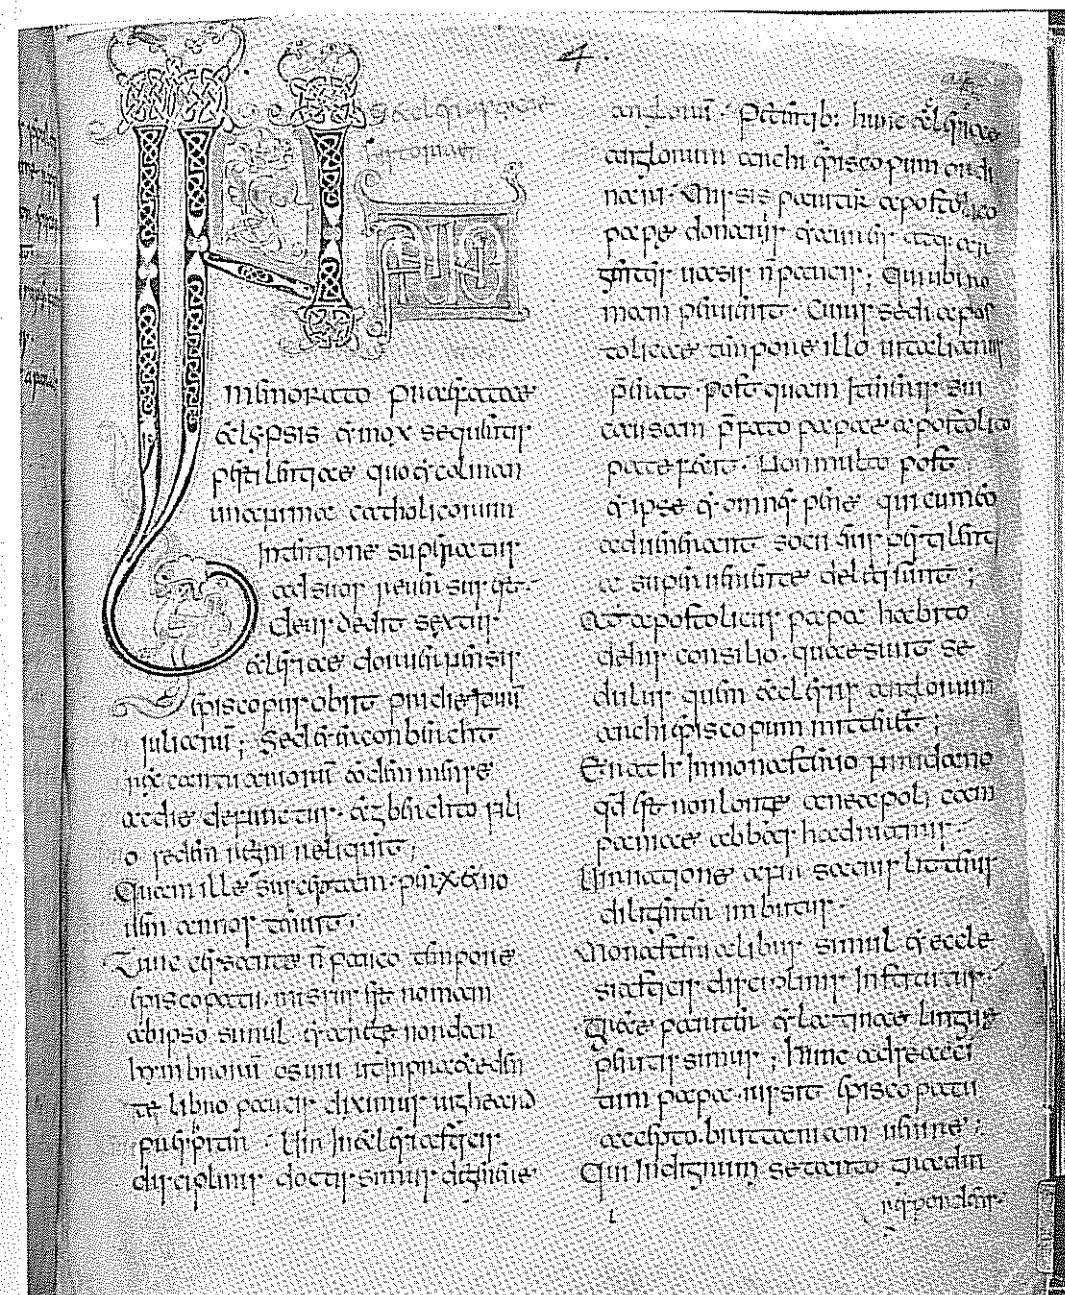 4.
IN ANNO
memorato præfatæ
eclypsis et mox sequentis
pestilentiae quo et colman
unanima catholicorum
intentione superatur
ad suos reuersus est.
deus dedit sextus
ecclesiae doruuernensis
episcopus obiit pridie iduum
iuliarum; Sed et erconbercht
rex cantuariorū eodem mense
ac die defunctus. ecgberchto fili
o sedem regni reliquit;
Quam ille susceptam. per
annos tenuit;
Tunc cessante n pauco tempore
episcopatu. missus est romam
ab ipso simul et a rege nordan
hymbrorū osuiu ut in præcedēn
te libro paucis diximus uigheard
presbyter. Uir in ecclesiasticis
disciplinis doctissimus de genere
anglorū. Petentibus hunc ecclesiae
anglorum archiepiscopum ordi
nari. Missis pariter apostolico
papæ donariis et aureis atq; ar
genteis uasis n paucis; Qui ubi ro
mam peruenit. Cuius sedi apos
tolicae tempore illo uitalianus
præerat. postquam itineris sui
causam p̄fato papae apostolico
patefecit. Non multo post;
et ipse et omnes pene qui cum eo
aduenerant socii pestilenti
a superueniente deleti sunt;
At apostolicus papa habito
de his consilio. quaesiuit se
dulus quem ecclesiis anglorum
archiepiscopum mitteret;
Erat in monasterio niridano
qd est non longe a neapoli cam
paniae abbas hadrianus.
Uir natione afir sacris litteris
diligenter imbutus.
Monasterialibus simul et eccle
siasticis disciplinis institutus.
Grece pariter et latinae linguae
peritissimus; hunc ad se acci
tum papa. iussit episcopatu
accepto. brittaniam uenire;
Qui indignum se tanto gradui
respondens.